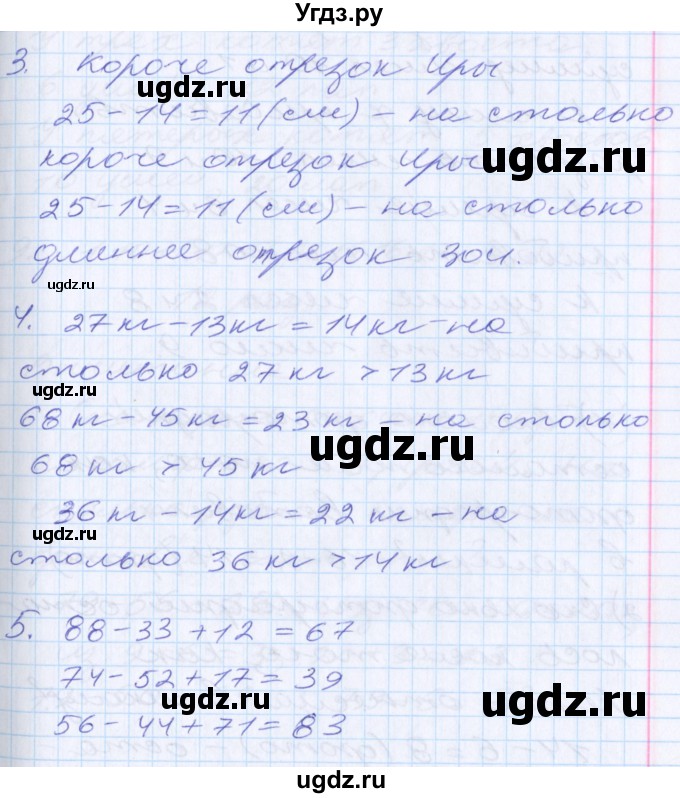 Угдз.ру
3. Короче отрезок Иры
25-14=11(см) - на столько
короче отрезок Иры
ugdz.ru
25-14=11(см) - на столько
длиннее отрезок Зои.
ugdz.ru
4. 27кг-13кг=14кг-на
столько 27кг >13кг
ugdz.ru
68кг-45кг=23кг-на столько
68кг > 45кг
ugdz.ru
36кг-14кг=22кг-на
ugdz.ru
столько 36кг>14кг
5. 88-33+12=67
74-52+17=39
ugdz.ru
ugdz.ru
56-44+71=83
ugdz.ru